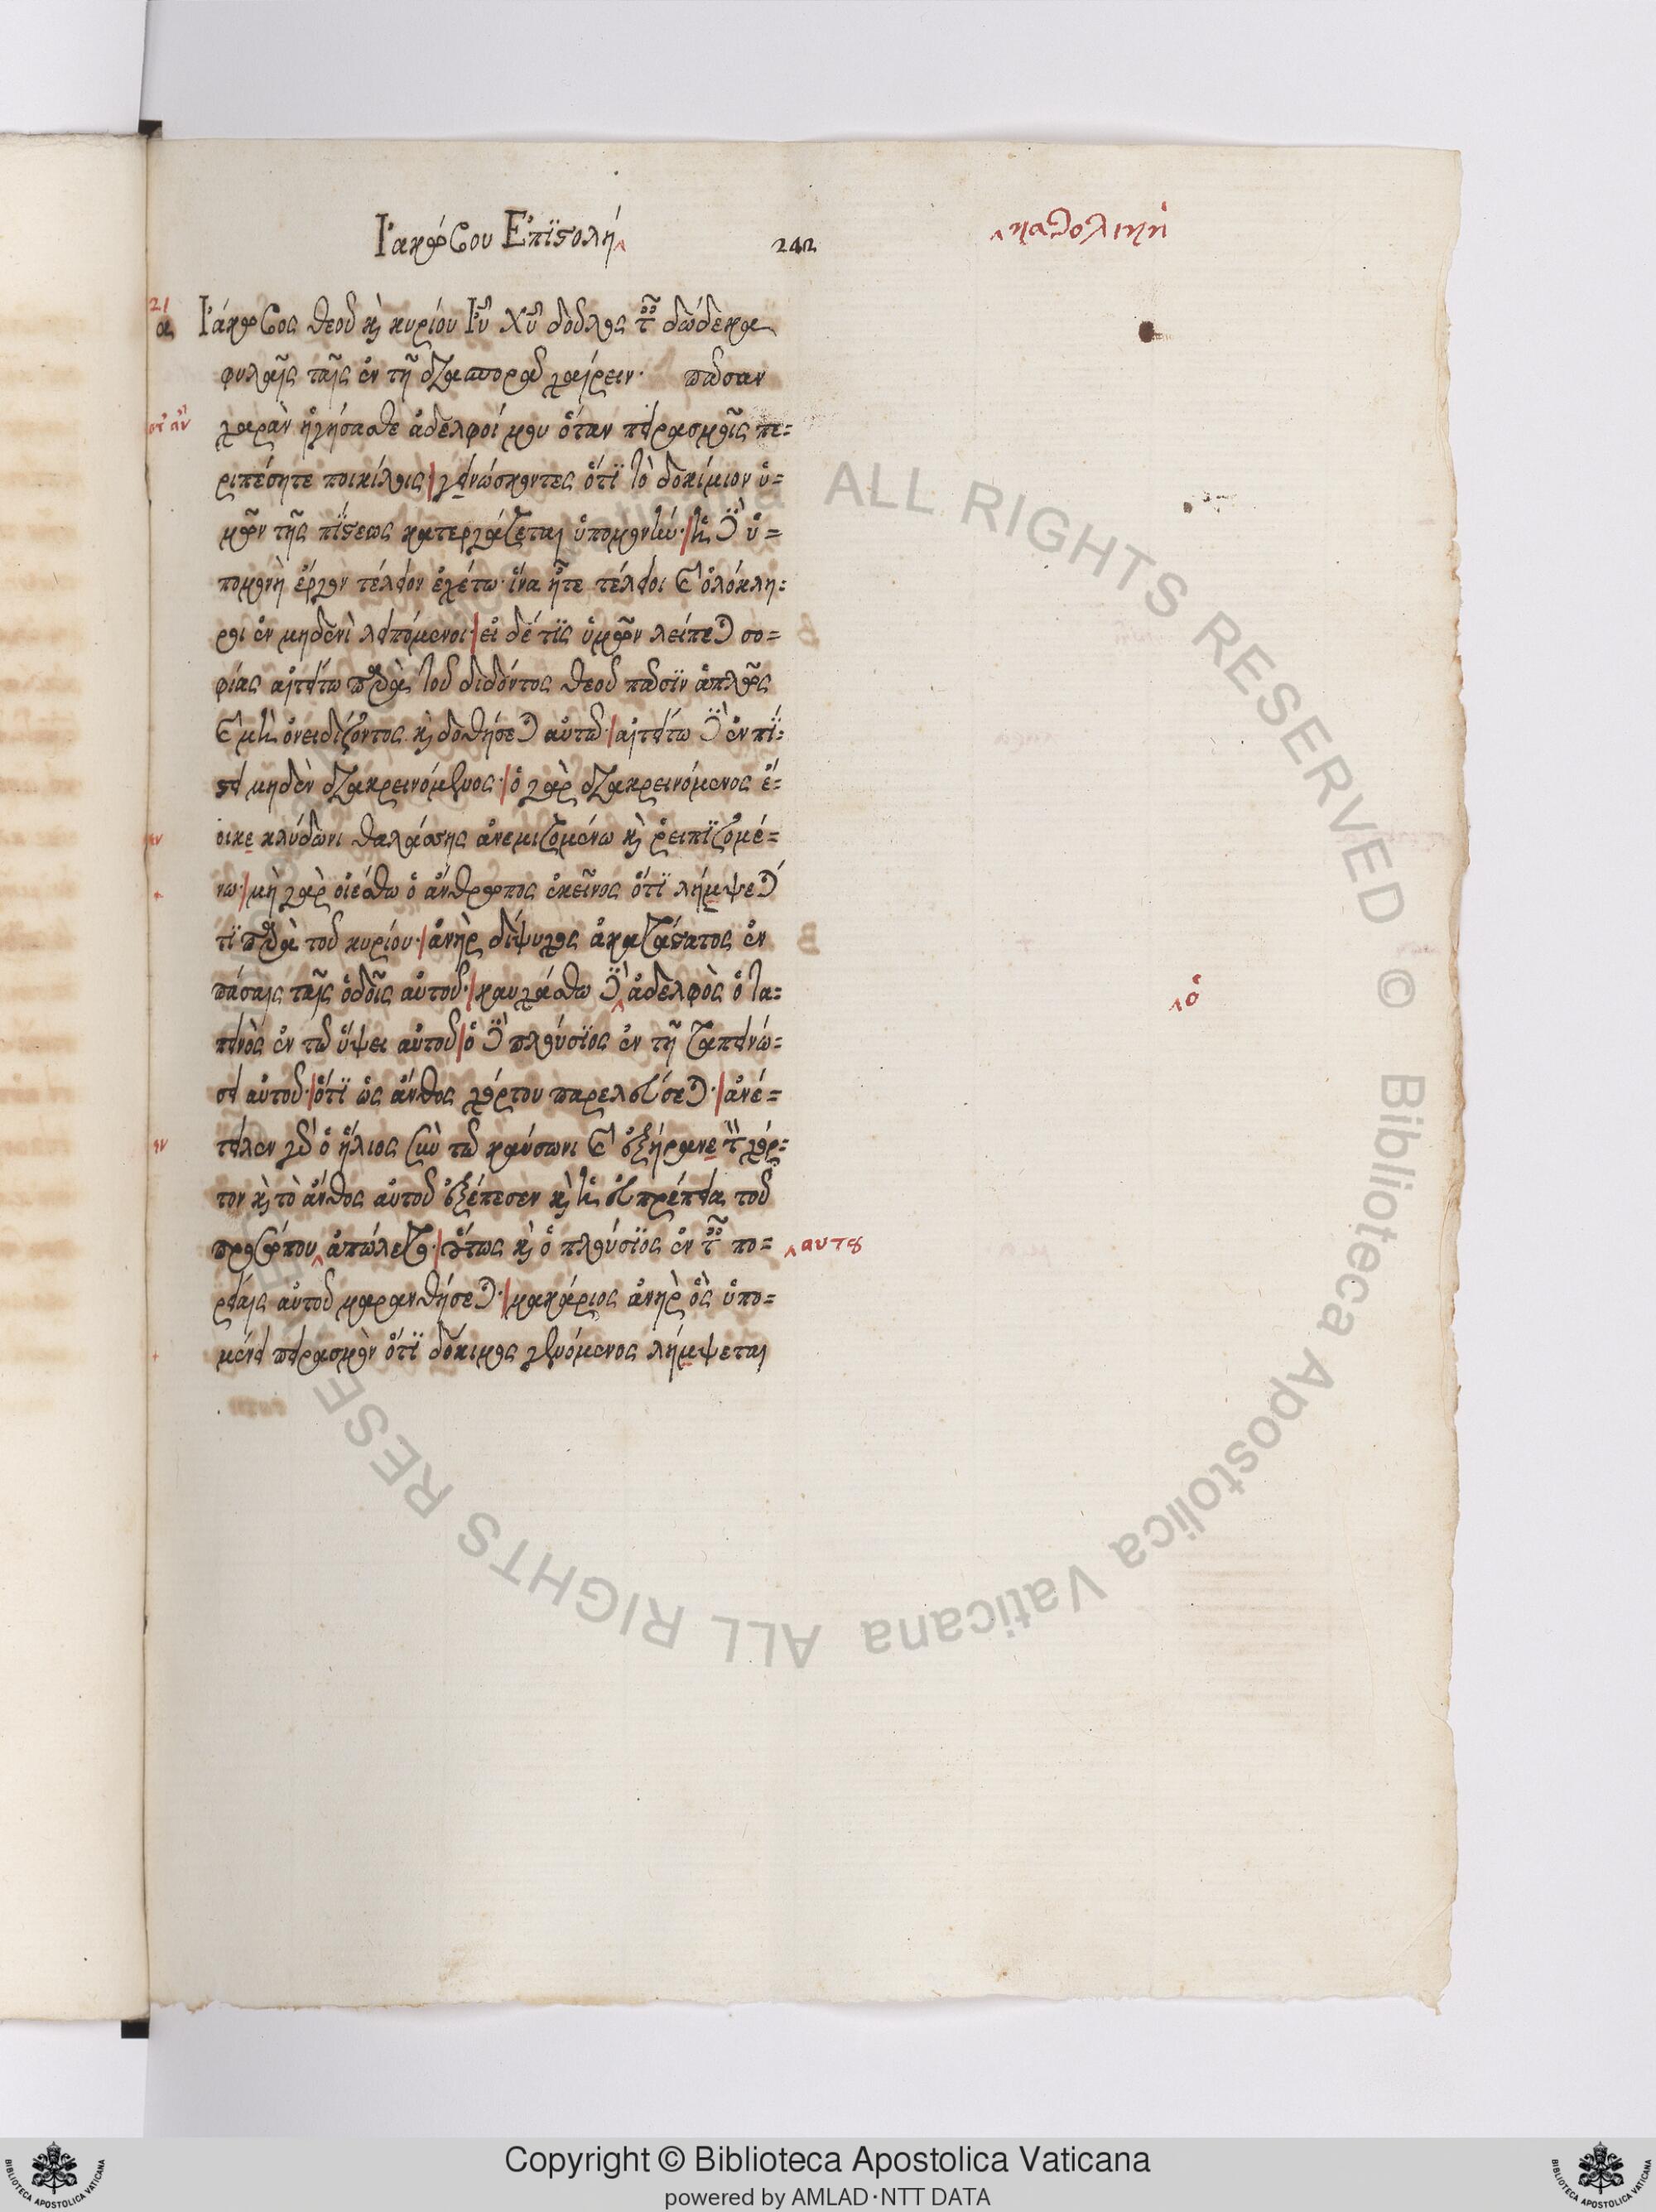 Ἰακώβου Ἐπιστολή
242
‸καθολικὴ
21
α Ἰάκωβος θεοῦ καὶ κυρίου Ἰῦ Χῦ δοῦλος ταῖς δώδεκα
φυλαῖς ταῖς ἐν τῇ διασπορᾷ χαίρειν· πᾶσαν
χαρὰν ἡγήσασθε ἀδελφοί μου ὅταν πειρασμοῖς πε=
ριπέσητε ποικίλοις| γεινώσκοντες ὅτι τὸ δοκίμιον ὑ=
μῶν τῆς πίστεως κατεργάζεται ὑπομονήν·| ἡ δὲ ὑ=
πομονὴ ἔργον τέλειον ἐχέτω· ἵνα ἦτε τέλειοι καὶ ὁλόκλη=
ροι ἐν μηδενὶ λειπόμενοι·| εἰ δέ τις ὑμῶν λείπεται σο=
φίας αἰτείτω παρὰ τοῦ διδόντος θεοῦ πᾶσιν ἁπλῶς
καὶ μὴ ὀνειδίζοντος καὶ δοθήσεται αὐτῷ·| αἰτείτω δὲ ἐν πί=
στει μηδὲν διακρεινόμενος·| ὁ γὰρ διακρεινόμενος ἔ=
οικε κλύδωνι θαλάσσης ἀνεμιζομένω καὶ ῥειπιζομέ=
νω·| μὴ γὰρ οἰέσθω ὁ ἄνθρωπος ἐκεῖνος ὅτι λήμψεται
τι παρὰ τοῦ κυρίου·| ἀνὴρ δίψυχος ἀκατάστατος ἐν
πάσαις ταῖς ὁδοῖς αὐτοῦ·| καυχάσθω δὲ‸ ἀδελφὸς ὁ τα= ‸ὁ
πεινὸς ἐν τῷ ὕψει αὐτοῦ| ὁ δὲ πλούσιος ἐν τῇ ταπεινώ=
σει αὐτοῦ·| ὅτι ὡς ἄνθος χόρτου παρελεύσεται·| ἀνέ=
τειλεν γὰρ ὁ ἥλιος σὺν τῷ καύσωνι καὶ ἐξήρανε τὸν χόρ=
τον καὶ τὸ ἄνθος αὐτοῦ ἐξέπεσεν καὶ ἡ εὐπρέπεια τοῦ
προσώπου‸ ἀπώλετο·| οὕτως καὶ ὁ πλούσιος ἐν ταῖς πο= ‸αυτου
ρείαις αὐτοῦ μαρανθήσεται·| μακάριος ἀνὴρ ὃς ὑπο=
μένει πειρασμὸν ὅτι δόκιμος γενόμενος λήμψεται
ALL RIGHTS RESERVED © Biblioteca Apostolica Vaticana ALL RIGHTS RESE
Copyright © Biblioteca Apostolica Vaticana
powered by AMLAD·NTT DATA
BIBLIOTECA APOSTOLICA VATICANA
BIBLIOTECA APOSTOLICA VATICANA